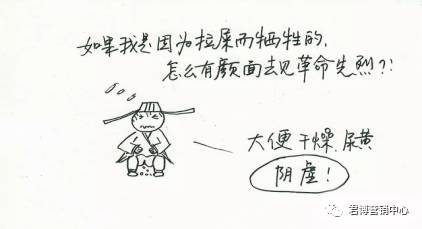 如果我是因为拉屎而牺牲的,
怎么有颜面去见革命先烈?!
大便干燥 尿黄
阴虚!
君博营销中心